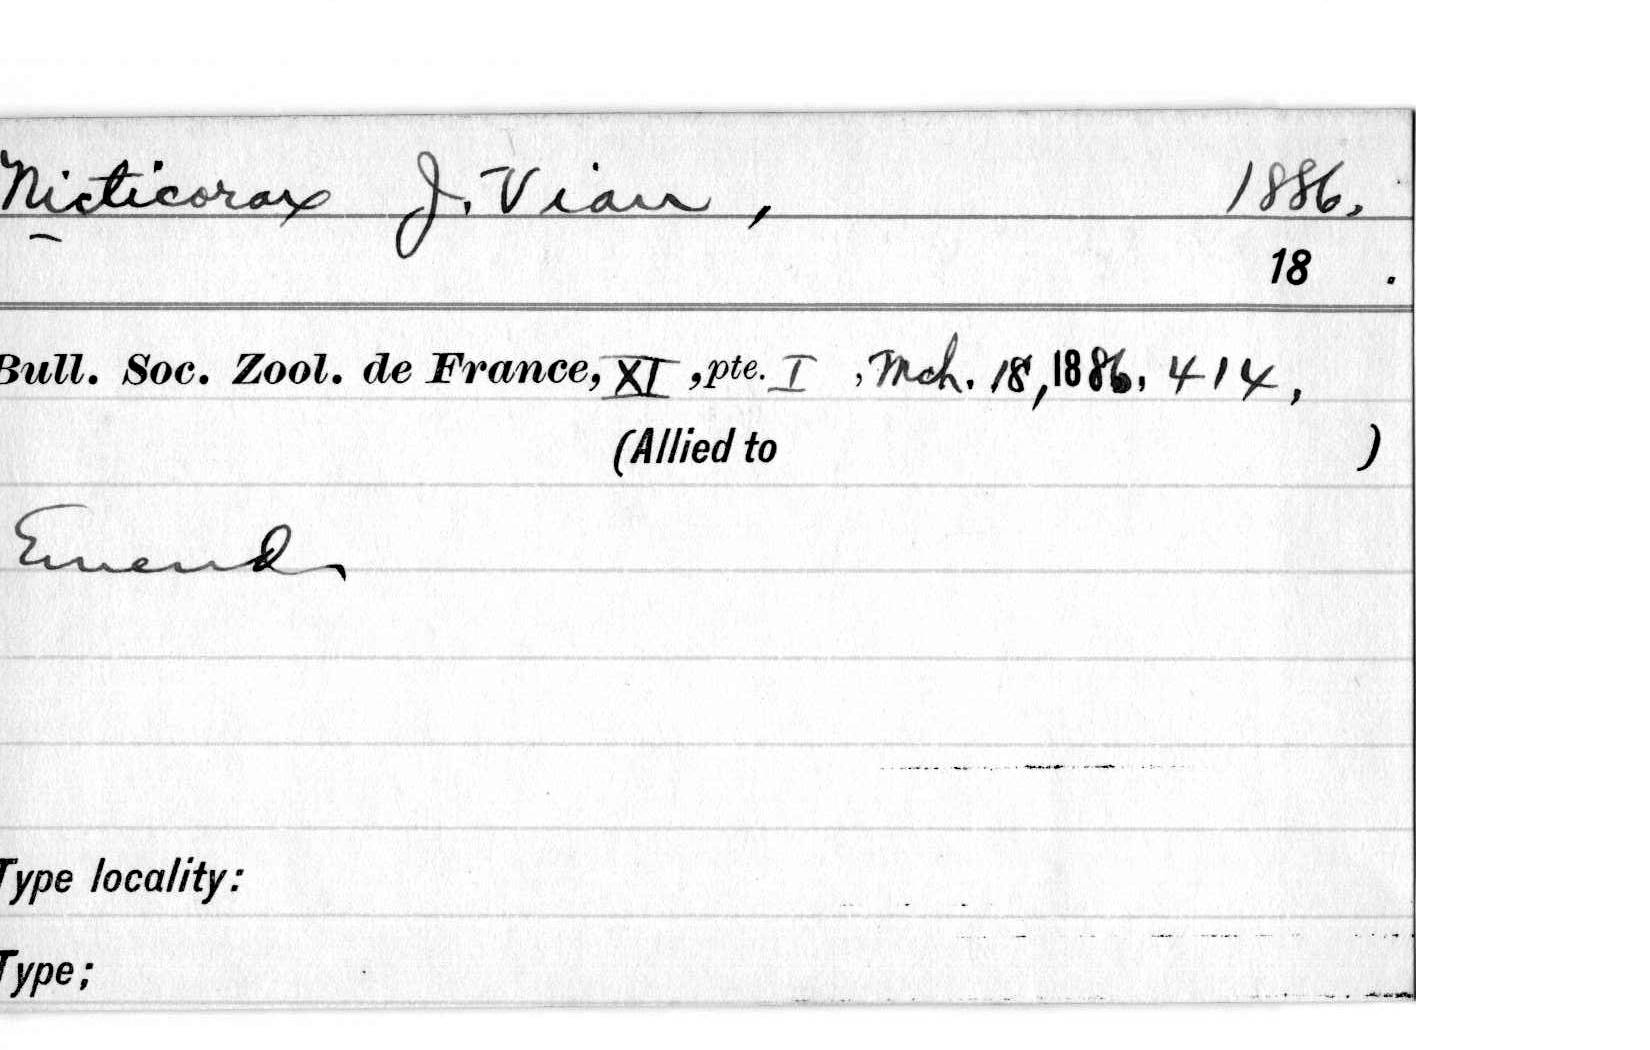 Nicticorax J. Vian, 1886.
18 .
Bull. Soc. Zool. de France, XI, pte. I, Mch. 18, 1886, 414,
(Allied to )
Emend.
Type locality:
Type;